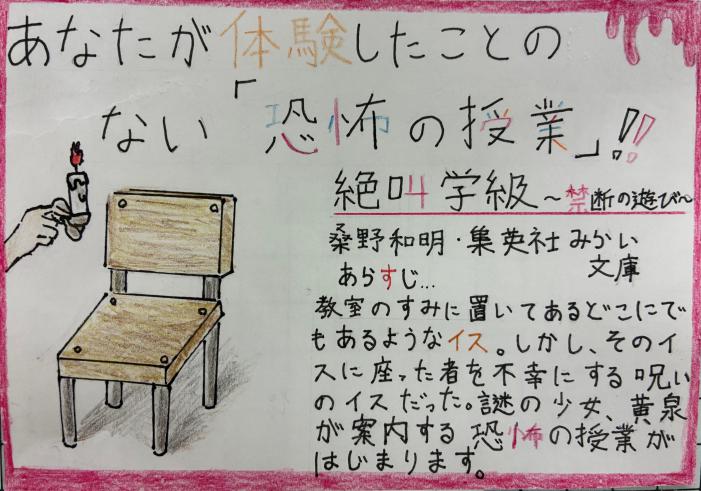 あなたが体験したことの
ない「恐怖の授業」!!
絶叫学級～禁断の遊び～
桑野和明・集英社みらい
文庫
あらすじ…
教室のすみに置いてあるどこにで
もあるようなイス。しかし、そのイ
スに座った者を不幸にする呪い
のイスだった。謎の少女、黄泉
が案内する恐怖の授業が
はじまります。